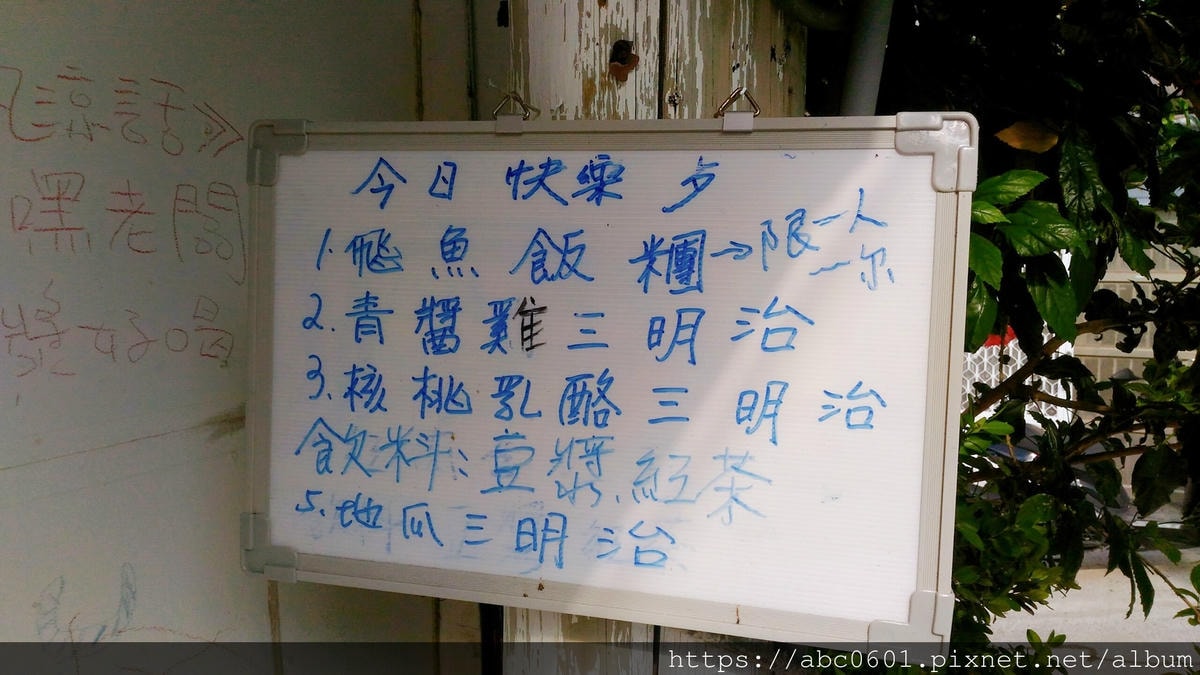 今日 快樂 夕
1.飛魚飯糰→限一人
一尔
2.青醬雞三明治
3.核桃乳酪三明治
飲料:豆漿.紅茶
5.地瓜三明治
嘿老闆
漿好喝
https://abc0601.pixnet.net/album